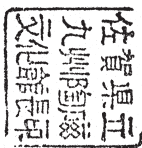 佐賀県立
九州陶磁
文化館長印